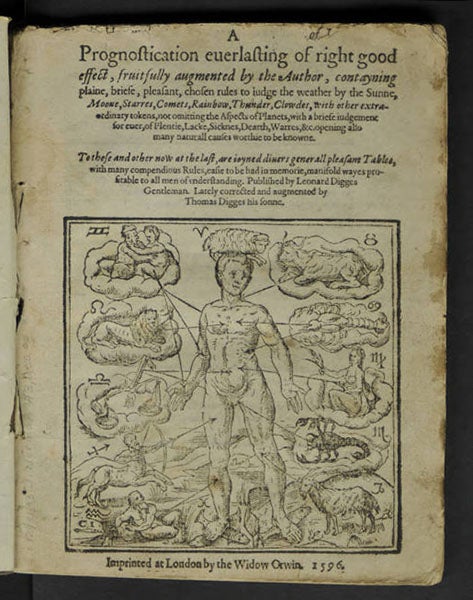 A
Prognoſtication euerlaſting of right good
effect, fruitfully augmented by the Author, contayning
plaine, briefe, pleasant, chosen rules to iudge the weather by the Sunne,
Moone, Starres, Comets, Rainbow, Thunder, Clowdes, with other extra-
ordinary tokens, not omitting the Aspects of Planets, with a briefe iudgement
for euer, of Plentie, Lacke, Sicknes, Dearth, Warres, &c. opening also
many naturall causes worthie to be knowne.
To these and other now at the last, are ioyned diuers generall pleasant Tables,
with many compendious Rules, easie to be had in memorie, manifold wayes pro-
fitable to all men of vnderstanding. Published by Leonard Digges
Gentleman. Lately corrected and augmented by
Thomas Digges his sonne.
♈
♉
♎
♐
♒
C. I.
Imprinted at London by the Widow Orwin. 1596.